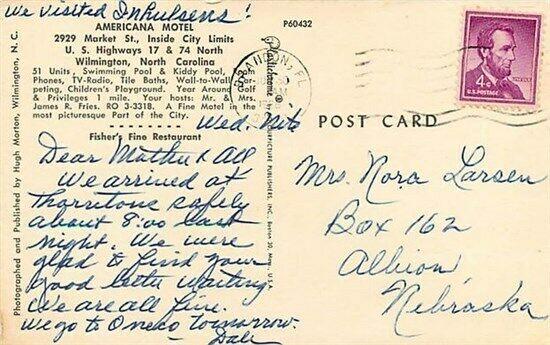 We visited Inhulsens!
AMERICANA MOTEL
2929 Market St., Inside City Limits
U. S. Highways 17 & 74 North
Wilmington, North Carolina
51 Units, Swimming Pool & Kiddy Pool, Room
Phones, TV-Radio, Tile Baths, Wall-to-Wall Car-
peting, Children's Playground. Year Around Golf
& Privileges 1 mile. Your hosts: Mr. & Mrs.
James R. Fries. RO 3-3318. A Fine Motel in the
most picturesque Part of the City.
Fisher's Fine Restaurant
Photographed and Published by Hugh Morton, Wilmington, N. C.
P60432
Plastichrome
®
INC., Boston 30, Mass., U.S.A.
FL
4¢
U.S. POSTAGE
POST CARD
Wed. Nite
Dear Mother & All
We arrived at
Thorntons safely
about 8:00 last
night. We were
glad to find your
good letter waiting.
We are all fine.
We go to Oneco tomorrow.
— Dale
Mrs. Nora Larsen
Box 162
Albion,
Nebraska